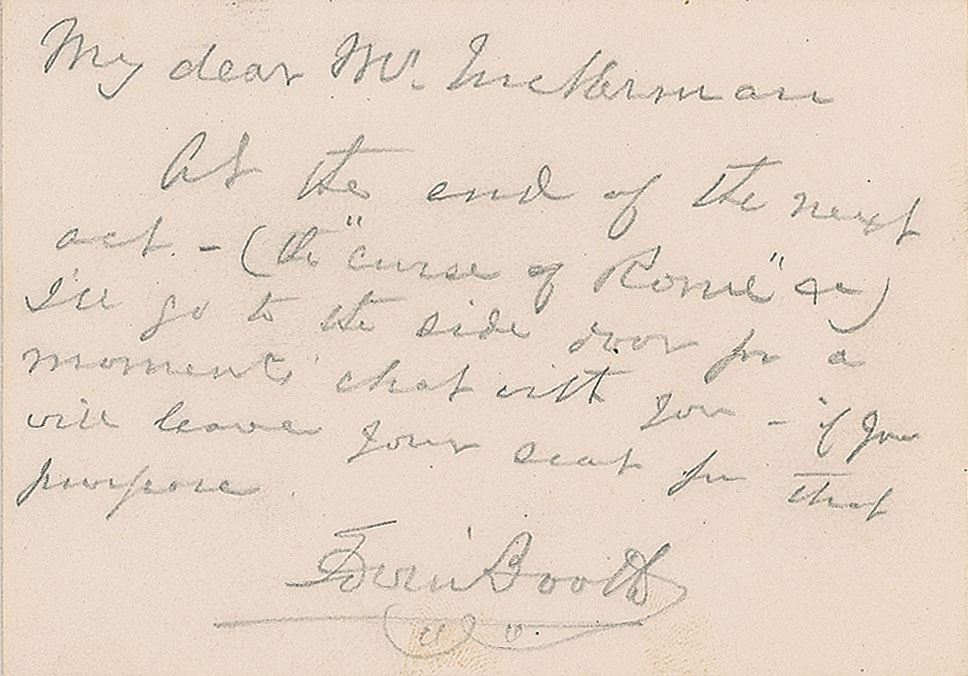 My dear Mr.
At the end of the next
act. - (the "curse of Rome" &c)
I'll go to the side door for a
moment's chat with you - if you
will leave your seat for that
purpose.
Edwin Booth